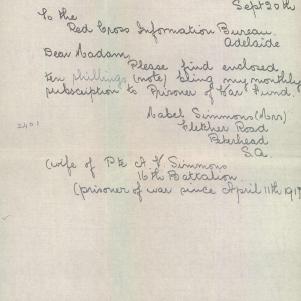 Sept 20th
To the
Red Cross Information Bureau
Adelaide
Dear Madam,
Please find enclosed
ten shillings (note) being my monthly
subscription to Prisoner of War Fund.
Mabel Simmons (Mrs)
2401
Fletcher Road
Peterhead
S.A.
(wife of Pte A. Simmons
16th Battalion
(prisoner of war since April 11th 1917